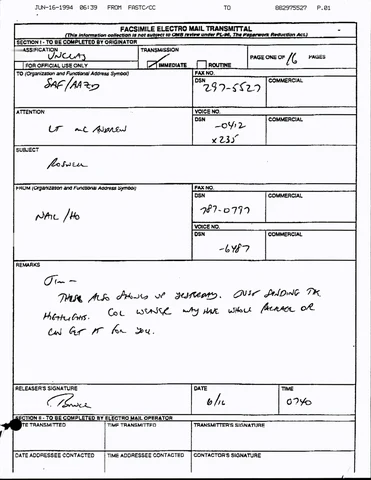 JUN-16-1994 06:39 FROM FASTC/CC TO 882975527 P.01
FACSIMILE ELECTRO MAIL TRANSMITTAL
(This information collection is not subject to OMB review under PL-96. The Paperwork Reduction Act.)
SECTION I - TO BE COMPLETED BY ORIGINATOR
CLASSIFICATION TRANSMISSION
UNCLAS
FOR OFFICIAL USE ONLY IMMEDIATE ROUTINE PAGE ONE OF 16 PAGES
TO (Organization and Functional Address Symbol) FAX NO.
SAF/AAZD DSN 297-5527 COMMERCIAL
ATTENTION VOICE NO.
LT McANDREW DSN -0412 COMMERCIAL
x235
SUBJECT
ROSWELL
FROM (Organization and Functional Address Symbol) FAX NO.
NAIC/HO DSN 787-0797 COMMERCIAL
VOICE NO.
DSN -6487 COMMERCIAL
REMARKS
Jim -
THESE ALSO SHOWED UP YESTERDAY. JUST SENDING THE
HIGHLIGHTS. COL WEAVER MAY HAVE WHOLE PACKAGE OR
CAN GET IT FOR YOU.
RELEASER'S SIGNATURE DATE TIME
Bruce 6/16 0740
SECTION II - TO BE COMPLETED BY ELECTRO MAIL OPERATOR
DATE TRANSMITTED TIME TRANSMITTED TRANSMITTER'S SIGNATURE
DATE ADDRESSEE CONTACTED TIME ADDRESSEE CONTACTED CONTACTOR'S SIGNATURE